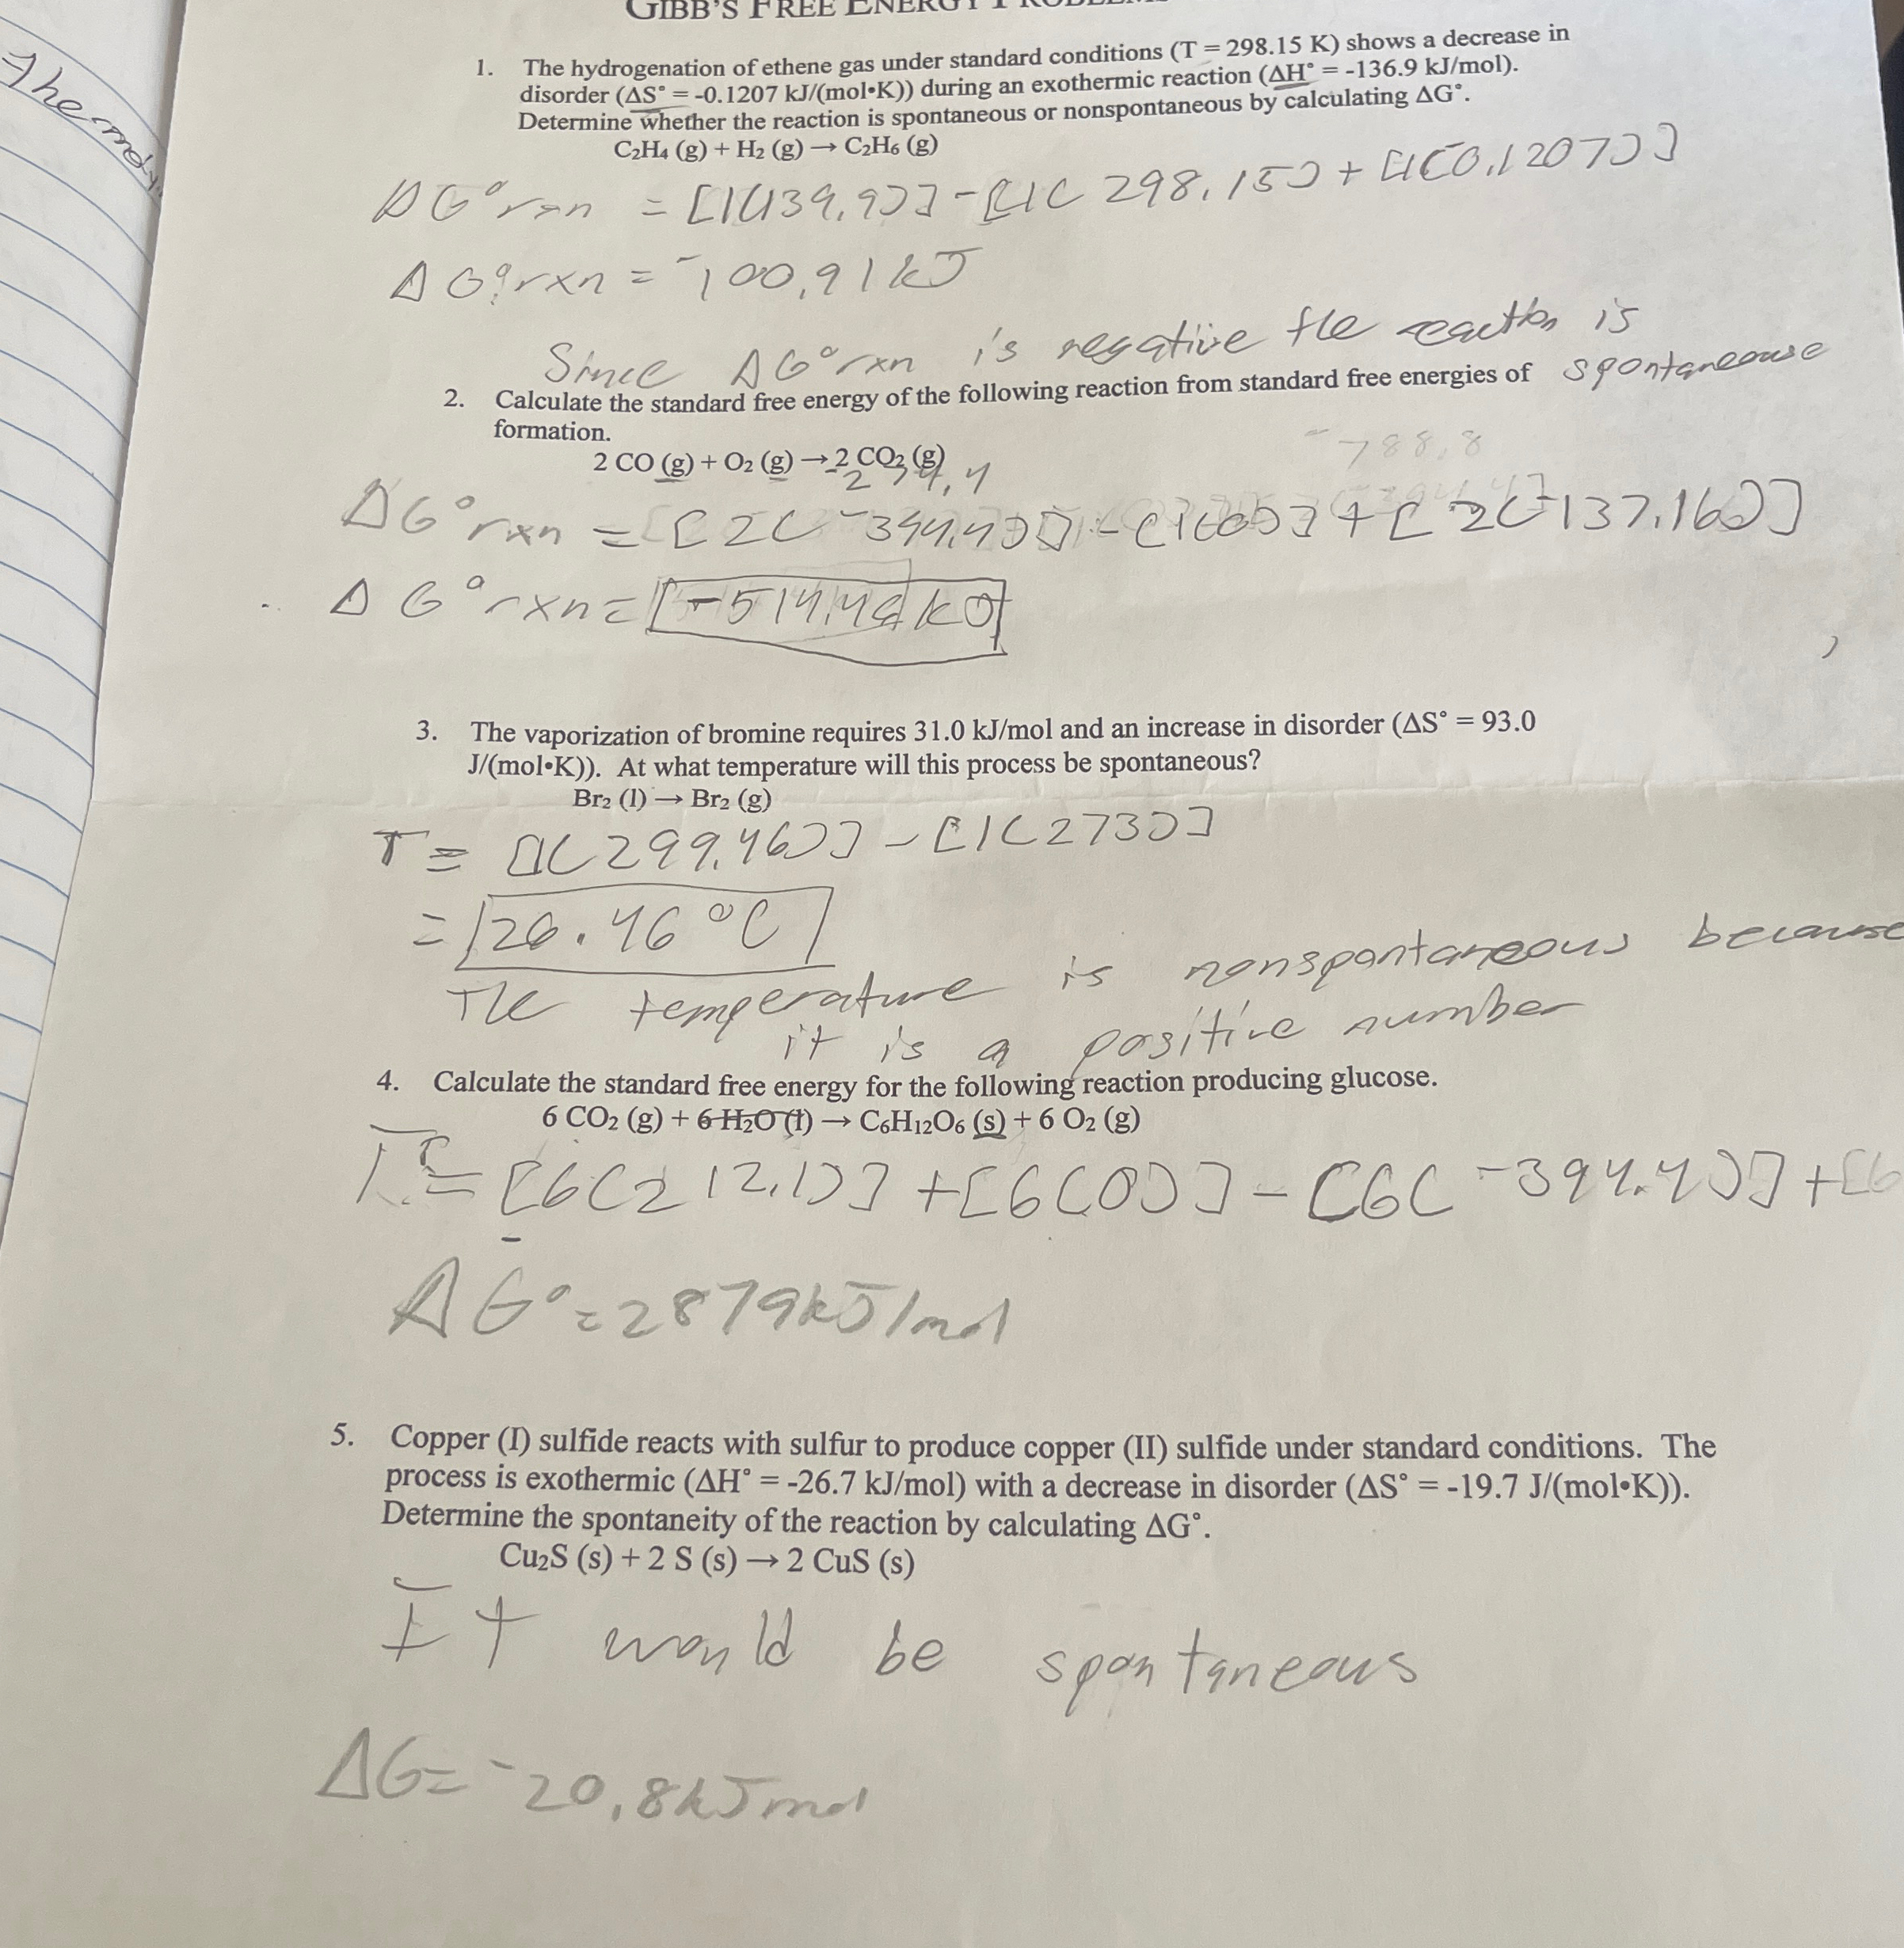 GIBB'S FREE ENERGY PROBLEM
1. The hydrogenation of ethene gas under standard conditions (T = 298.15 K) shows a decrease in
disorder (ΔS° = -0.1207 kJ/(mol•K)) during an exothermic reaction (ΔH° = -136.9 kJ/mol).
Determine whether the reaction is spontaneous or nonspontaneous by calculating ΔG°.
C₂H₄ (g) + H₂ (g) → C₂H₆ (g)
ΔG°rxn = [1(139.9)] - [1( 298.15) + [1(-0.1207)]
ΔG°rxn = -100.91 kJ
Since ΔG°rxn is negative the reaction is
spontaneouse
2. Calculate the standard free energy of the following reaction from standard free energies of
formation.
-788.8
2 CO (g) + O₂ (g) → 2 CO₂ (g)
ΔG°rxn = [2(-394.4)] - [1(0)] + [2(-137.16)]
ΔG°rxn = -514.48 kJ
3. The vaporization of bromine requires 31.0 kJ/mol and an increase in disorder (ΔS° = 93.0
J/(mol•K)). At what temperature will this process be spontaneous?
Br₂ (l) → Br₂ (g)
T = [1(299.46)] - [1(273)]
= 26.46 °C
The temperature is nonspontaneous because
it is a positive number
4. Calculate the standard free energy for the following reaction producing glucose.
6 CO₂ (g) + 6 H₂O (l) → C₆H₁₂O₆ (s) + 6 O₂ (g)
= [6(212.1)] + [6(0)] - [6(-394.4)] + [6
ΔG° = 2879 kJ/mol
5. Copper (I) sulfide reacts with sulfur to produce copper (II) sulfide under standard conditions. The
process is exothermic (ΔH° = -26.7 kJ/mol) with a decrease in disorder (ΔS° = -19.7 J/(mol•K)).
Determine the spontaneity of the reaction by calculating ΔG°.
Cu₂S (s) + 2 S (s) → 2 CuS (s)
It would be spontaneous
ΔG = -20.8 kJ mol